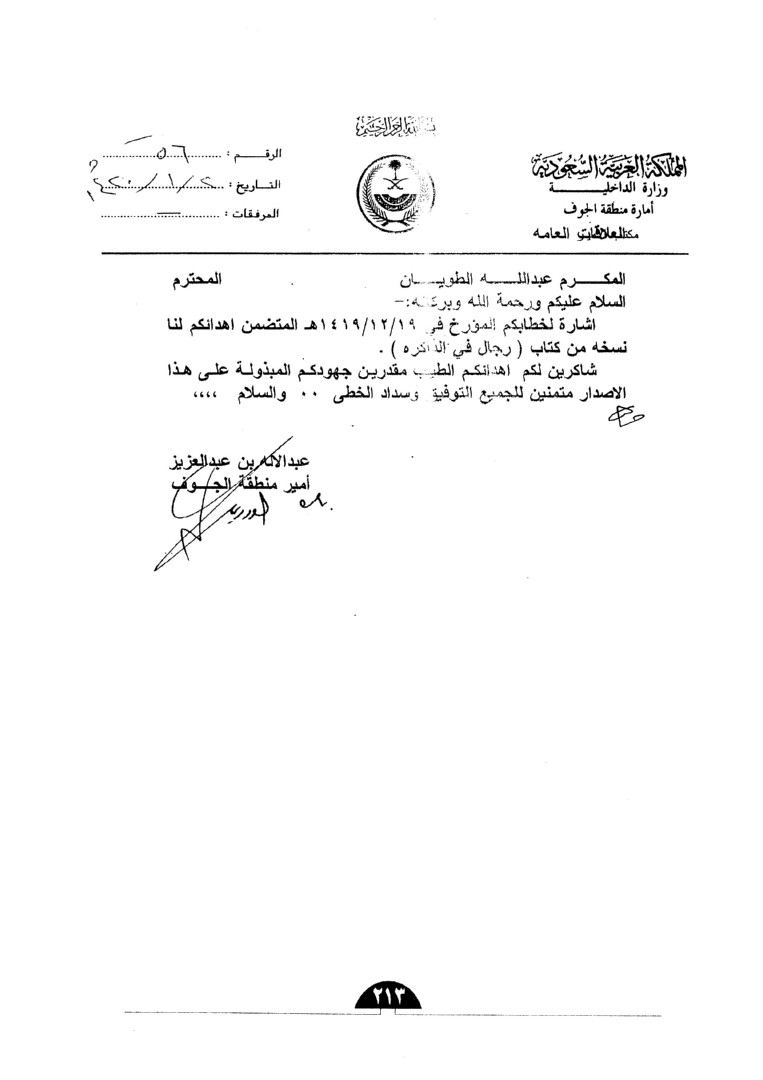 بسم الله الرحمن الرحيم
المملكة العربية السعودية
وزارة الداخلية
أمارة منطقة الجوف
العلاقات العامه
الرقم : ٥٦
التاريخ : ٢ / ١ / ١٤٢٠
المرفقات : —
المكرم عبدالله الطويان المحترم
السلام عليكم ورحمة الله وبركاته:-
اشارة لخطابكم المؤرخ في ١٤١٩/١٢/١٩هـ المتضمن اهدائكم لنا
نسخه من كتاب ( رجال في الذاكره ) .
شاكرين لكم اهدائكم الطيب مقدرين جهودكم المبذولة على هذا
الاصدار متمنين للجميع التوفيق وسداد الخطى ٠٠ والسلام ,,,,
عبدالاله بن عبدالعزيز
أمير منطقة الجوف
٢١٣